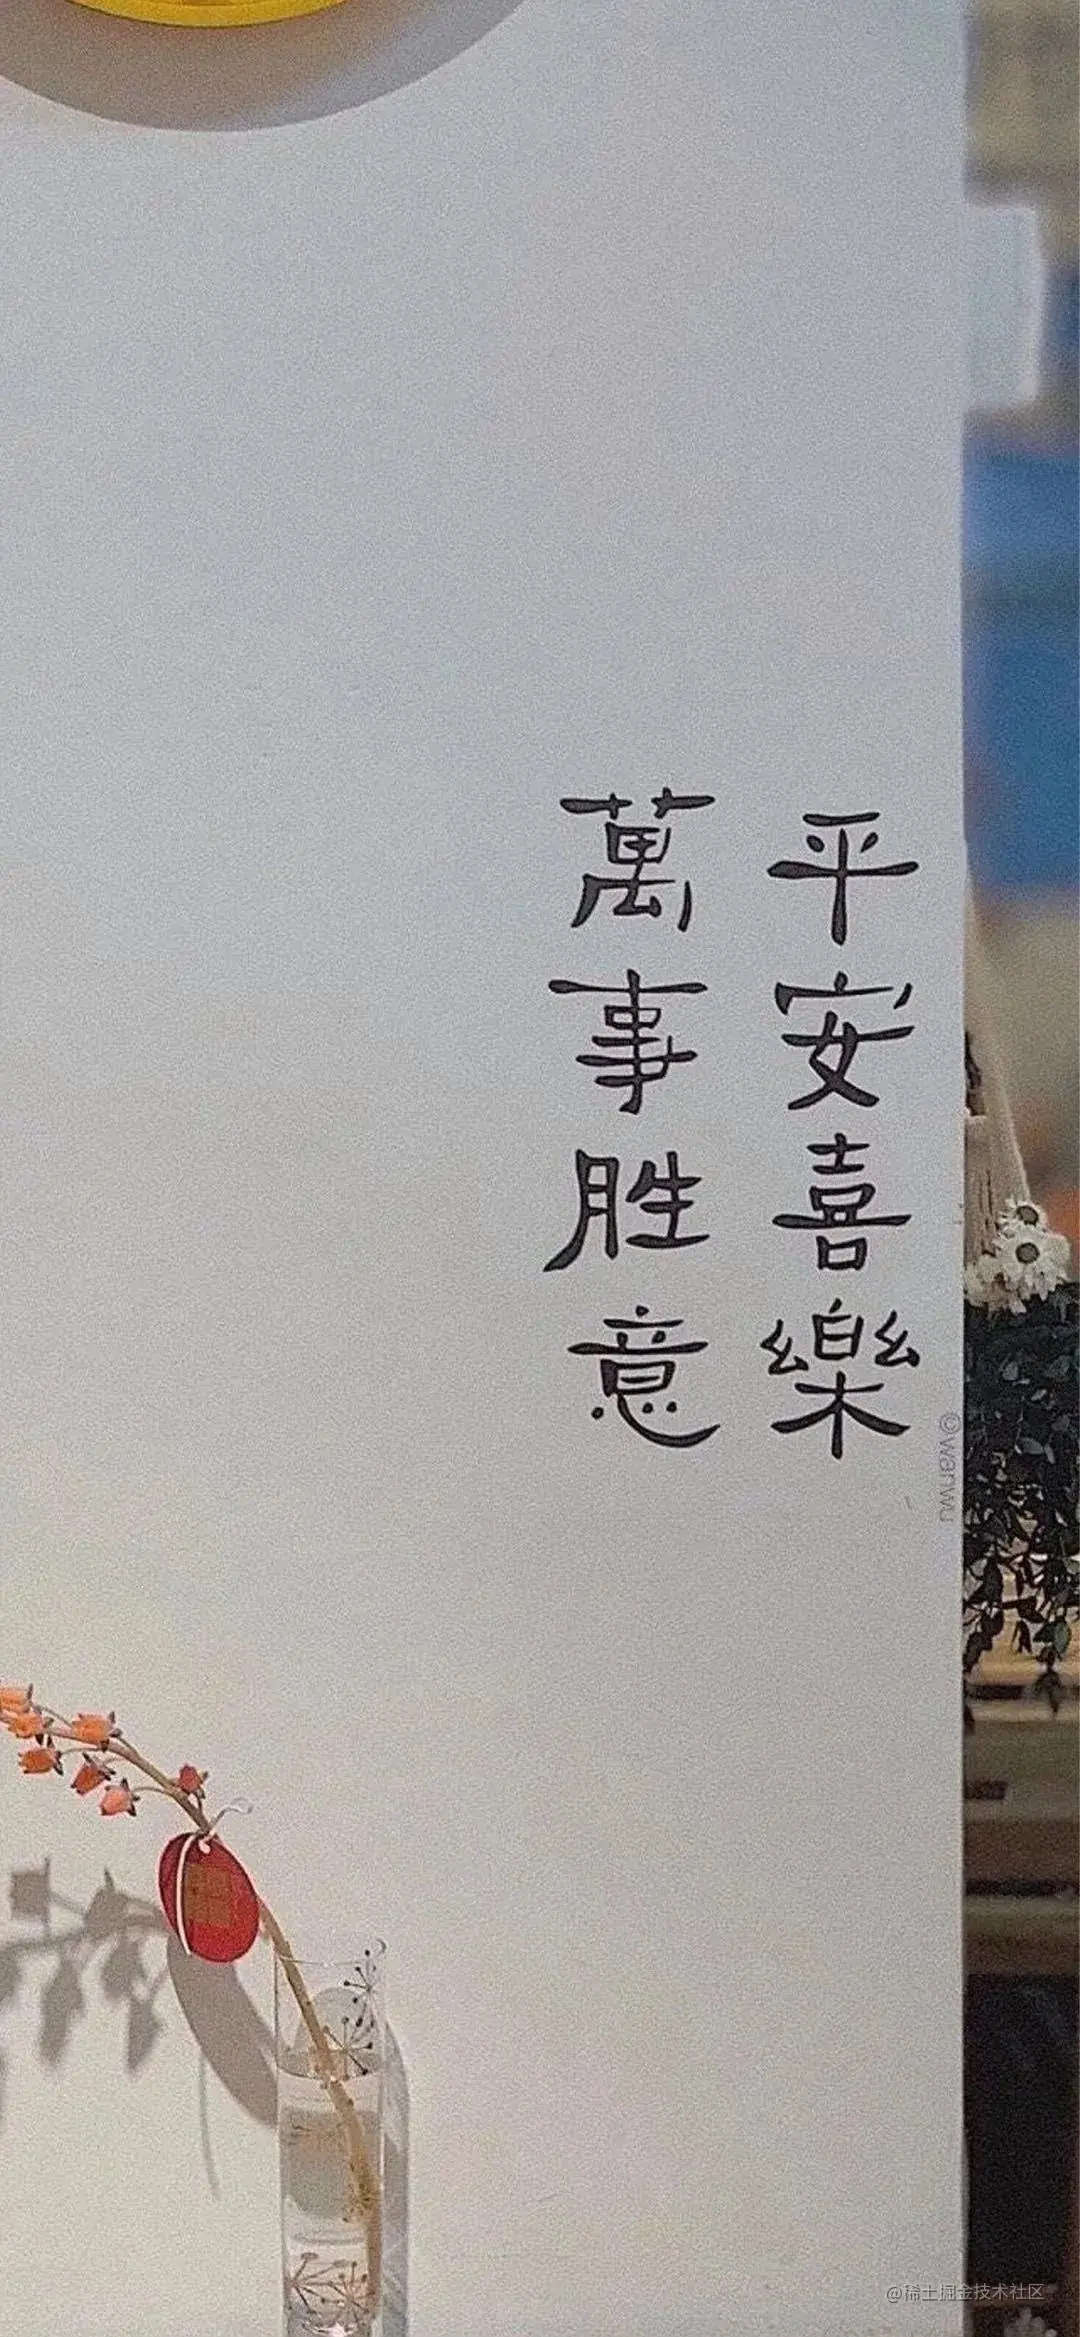 平安喜樂
萬事胜意
©wanwu
@稀土掘金技术社区